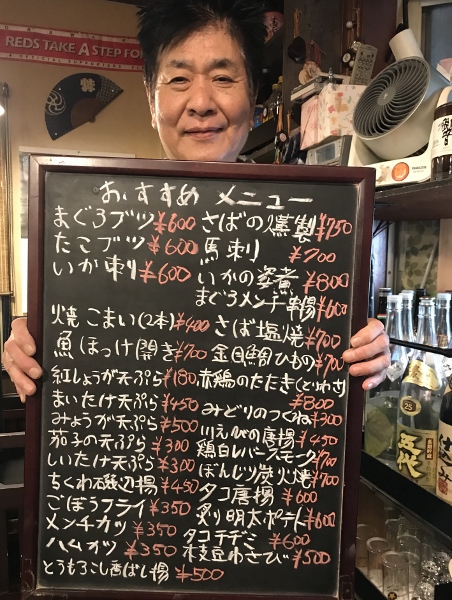 REDS TAKE A STEP FOR
おすすめ メニュー
まぐろブツ ¥600
たこブツ ¥600
いか刺 ¥600
焼こまい(2本) ¥400
魚ほっけ開き ¥700
紅しょうが天ぷら ¥180
まいたけ天ぷら ¥450
みょうが天ぷら ¥500
茄子の天ぷら ¥300
しいたけ天ぷら ¥300
ちくわ磯辺揚 ¥450
ごぼうフライ ¥350
メンチカツ ¥350
ハムカツ ¥350
とうもろこし香ばし揚 ¥500
さばの燻製 ¥750
馬刺 ¥700
いかの姿煮 ¥800
まぐろメンチ串揚 ¥600
さば塩焼 ¥700
金目鯛ひもの ¥700
赤鶏のたたき(とりわさ) ¥800
みどりのつくね ¥300
川えびの唐揚 ¥450
鶏白レバースモーク ¥700
ぼんじり炭火焼 ¥700
タコ唐揚 ¥600
炙り明太ポテト ¥600
タコチヂミ ¥600
枝豆わさび ¥500
25
五代